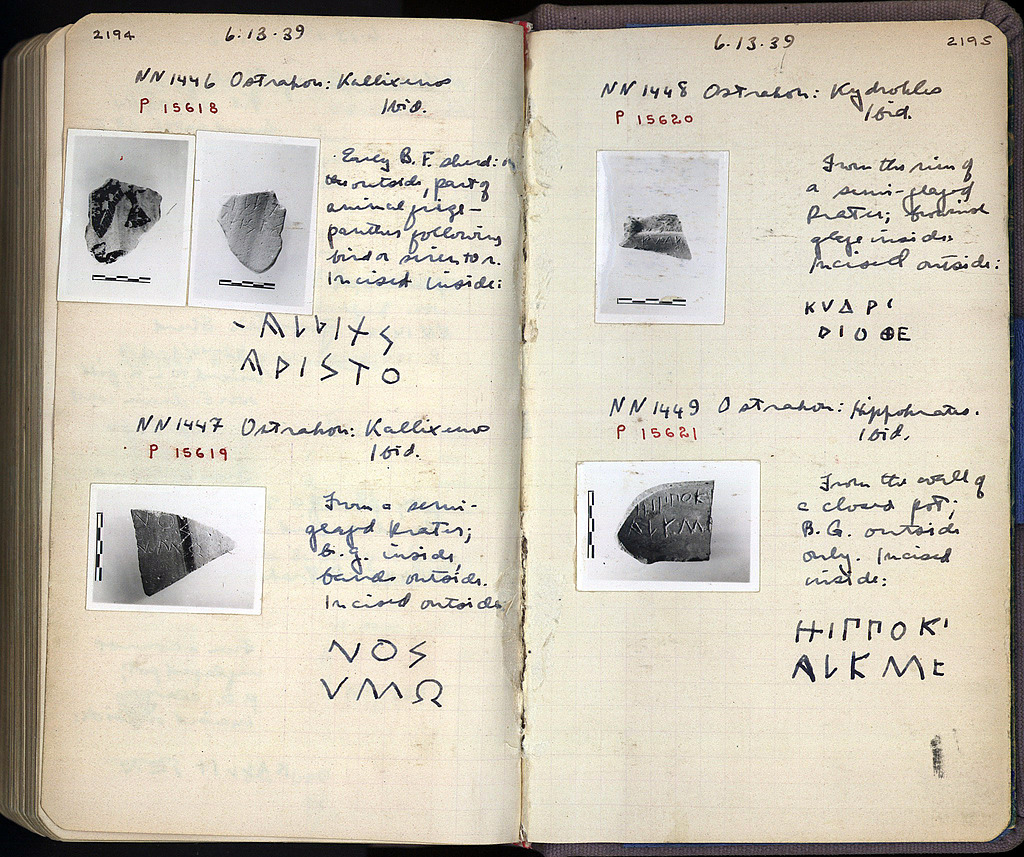 2194
6.13.39
NN 1446 Ostrakon: Kallixenos
P 15618 Ibid.
Early B.F. sherd: on
the outside, part of
animal frieze –
panther following
bird or siren to r.
Incised inside:
ΑΡΙSΤΟ
NN 1447 Ostrakon: Kallixenos
P 15619 Ibid.
From a semi-
glazed krater;
b.g. inside,
bands outside.
Incised outside:
ΝΟS
VΜΩ
6.13.39
2195
NN 1448 Ostrakon: Kydrokles
P 15620 Ibid.
From the rim of
a semi-glazed
krater; brownish
glaze inside.
Incised outside:
ΚVΔΡΙ
NN 1449 Ostrakon: Hippokrates.
P 15621 Ibid.
From the wall of
a closed pot;
B.G. outside
only. Incised
inside:
ΗΙΠΠΟΚ
ΑLΚΜΕ